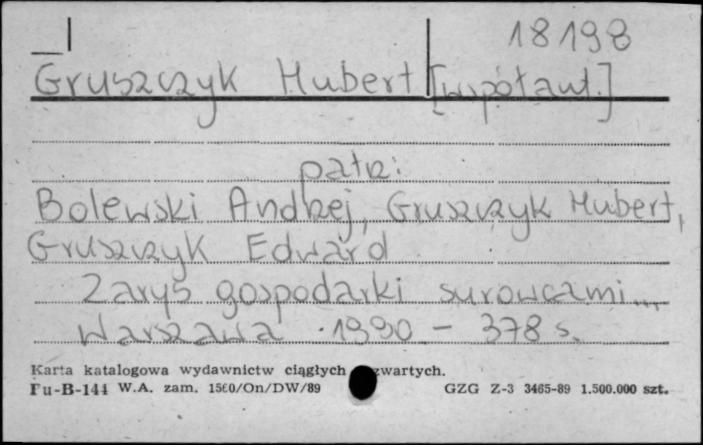 18198
Gruszczyk Hubert [współaut.]
patrz:
Bolewski Andrzej, Gruszczyk Hubert,
Gruszczyk Edward
Zarys gospodarki surowcami...
Warszawa 1990 - 378 s.
Karta katalogowa wydawnictw ciągłych zwartych.
Pu-B-144 W.A. zam. 1560/On/DW/89 GZG Z-3 3465-89 1.500.000 szt.